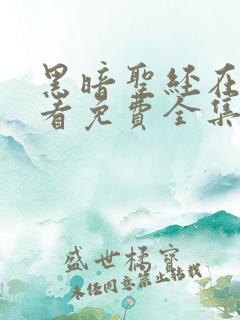 黑暗聖経在
看免費全集
盛世橘寶
未经同意禁止转载